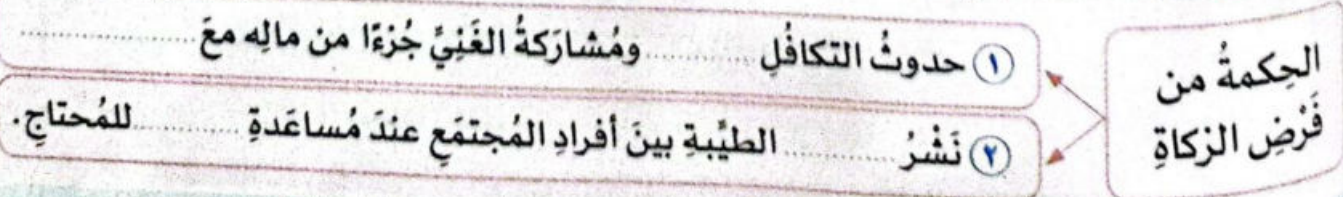 الحِكمةُ من
فَرْضِ الزكاةِ
١ حدوثُ التكافُلِ .............. ومُشارَكةُ الغَنِيِّ جُزْءًا من مالِه معَ ..............................
٢ نَشْرُ .................. الطيِّبةِ بينَ أفرادِ المُجتمَعِ عندَ مُساعَدةِ .................. للمُحتاجِ.